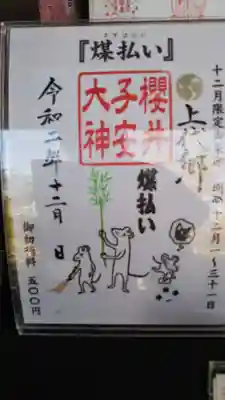 すすはらい
『煤払い』
十二月限定
十二月一~三十一日
上
郷
櫻井
子安
大神
煤払い
令和二年十二月 日
御初穂料 五〇〇円